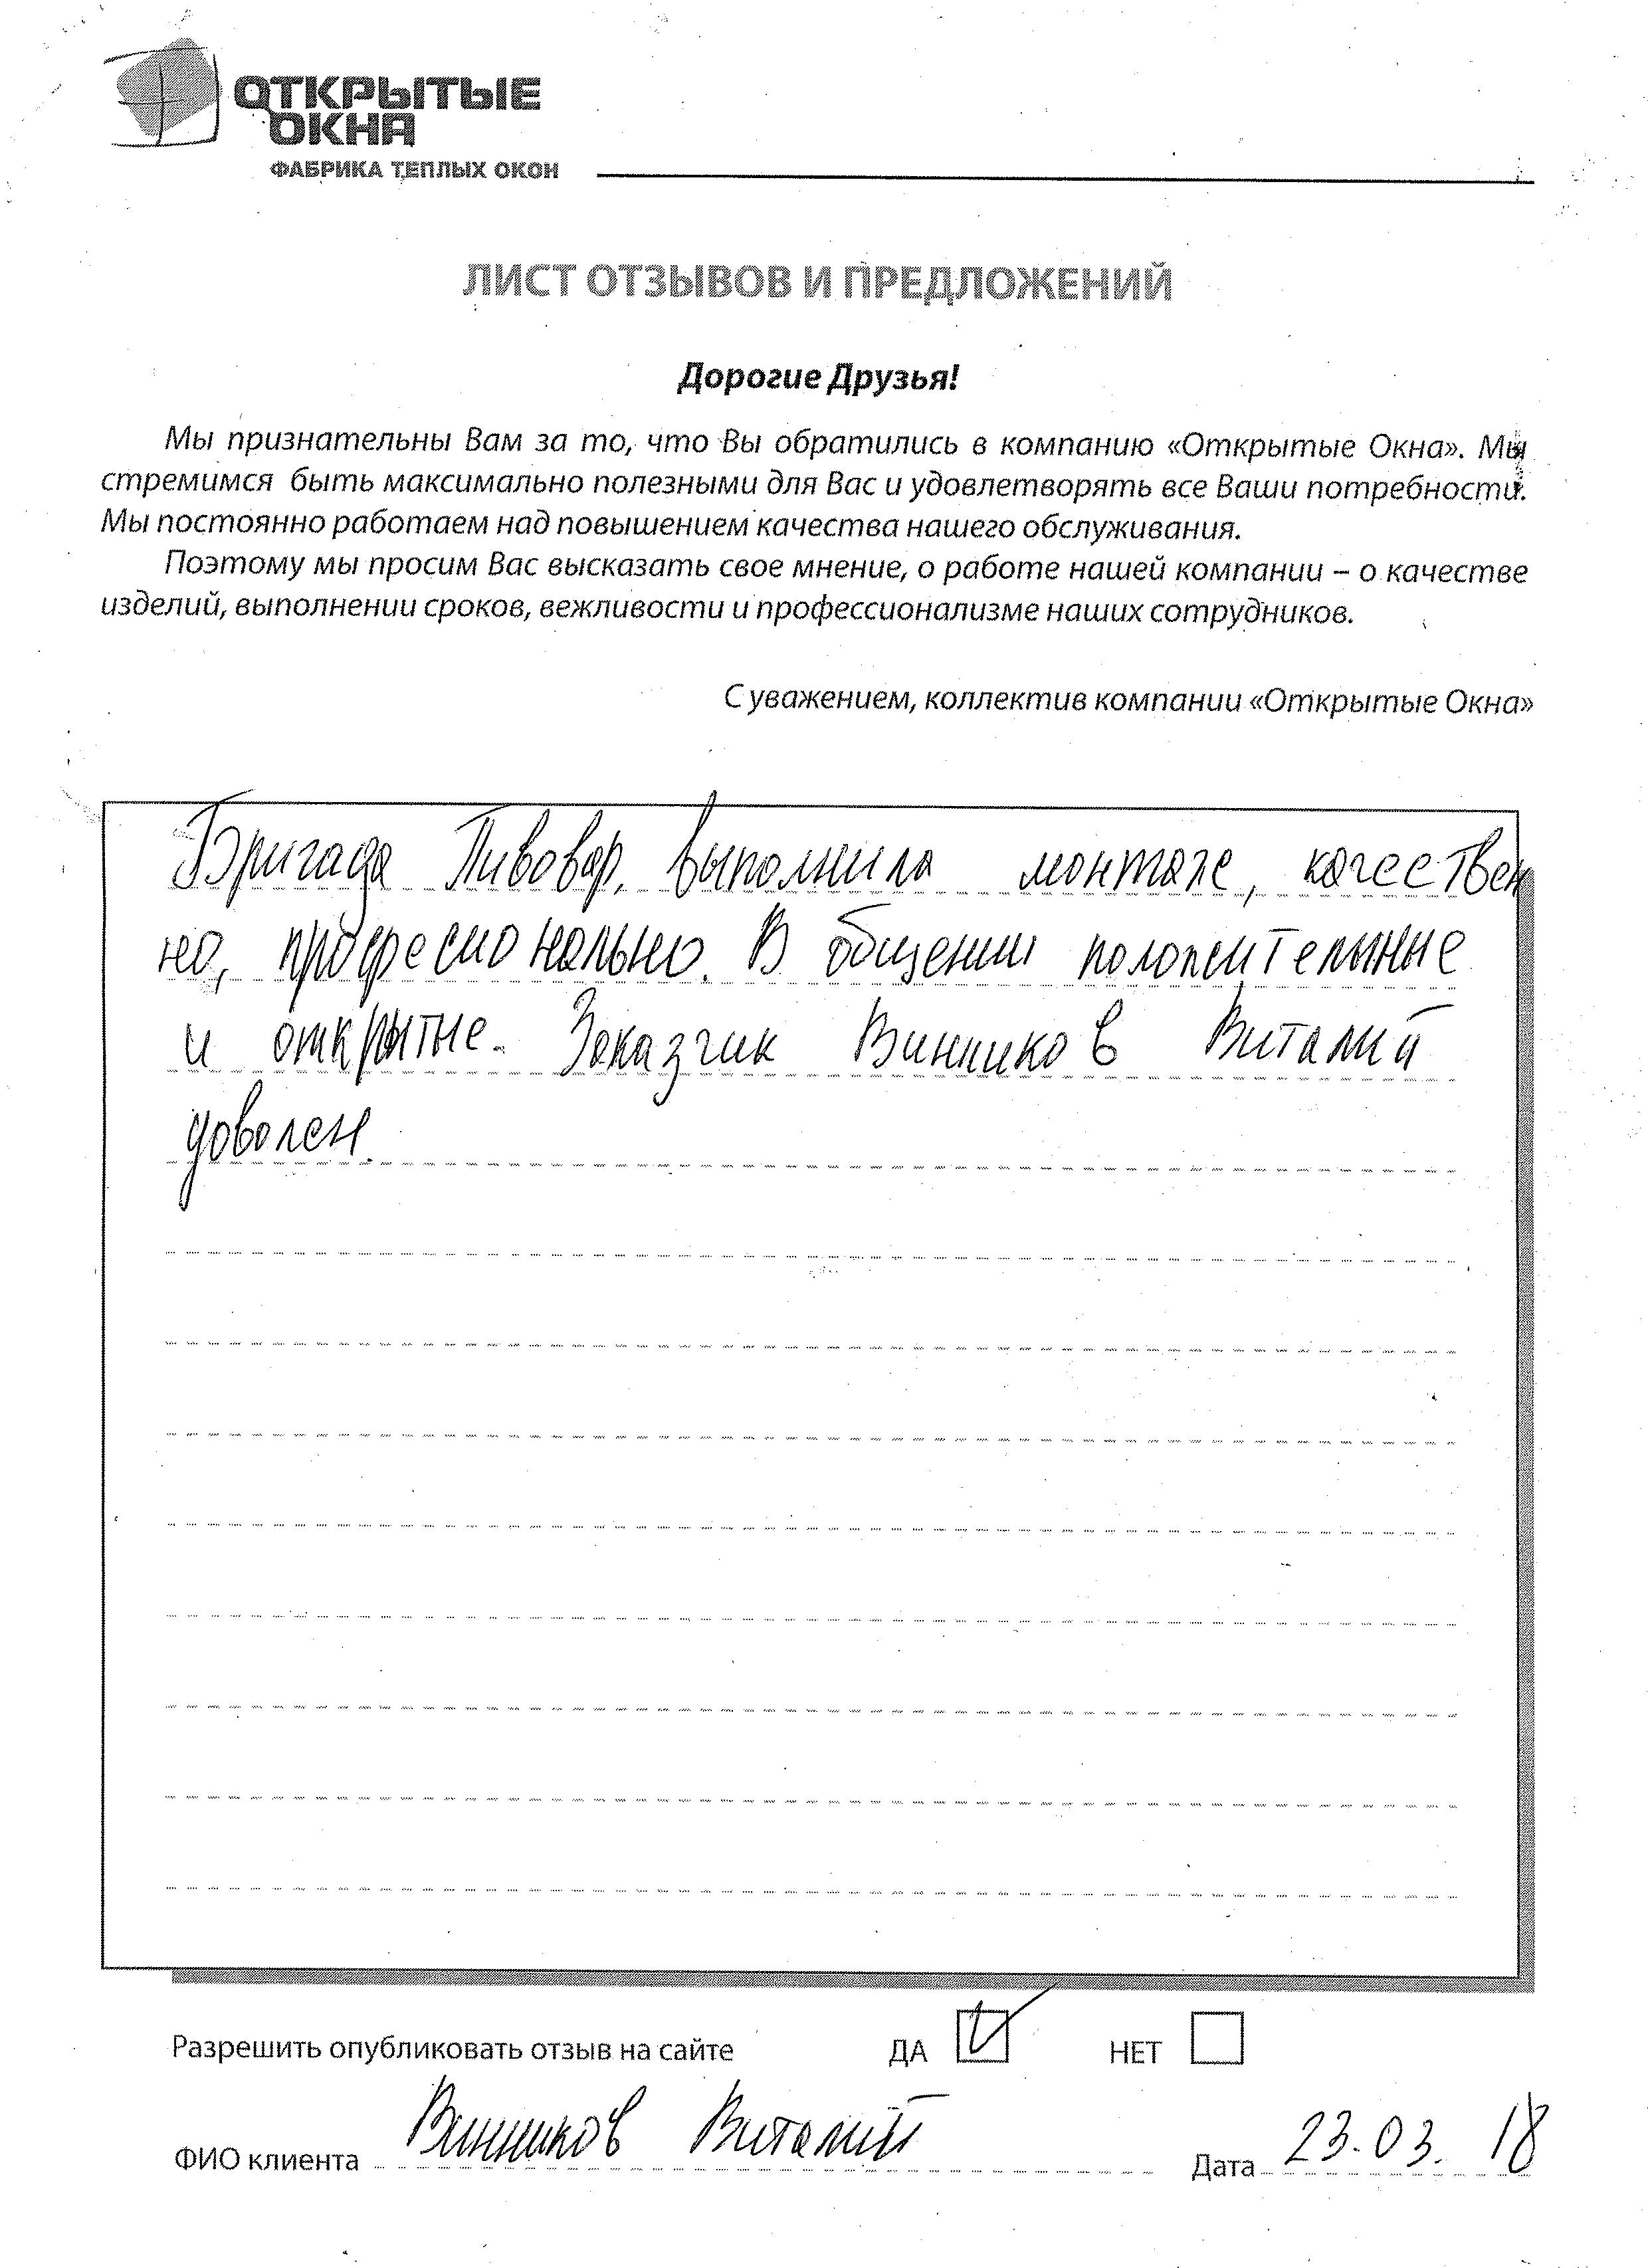 ОТКРЫТЫЕ
ОКНА
ФАБРИКА ТЕПЛЫХ ОКОН
ЛИСТ ОТЗЫВОВ И ПРЕДЛОЖЕНИЙ
Дорогие Друзья!
Мы признательны Вам за то, что Вы обратились в компанию «Открытые Окна». Мы
стремимся быть максимально полезными для Вас и удовлетворять все Ваши потребности.
Мы постоянно работаем над повышением качества нашего обслуживания.
Поэтому мы просим Вас высказать свое мнение, о работе нашей компании – о качестве
изделий, выполнении сроков, вежливости и профессионализме наших сотрудников.
С уважением, коллектив компании «Открытые Окна»
Бригада Пивовар. выполнила монтаж, качествен
но, професионально. В общении положительные
и открытые. Заказчик Винников Виталий
доволен.
Разрешить опубликовать отзыв на сайте ДА НЕТ
ФИО клиента Винников Виталий Дата 23.03.18